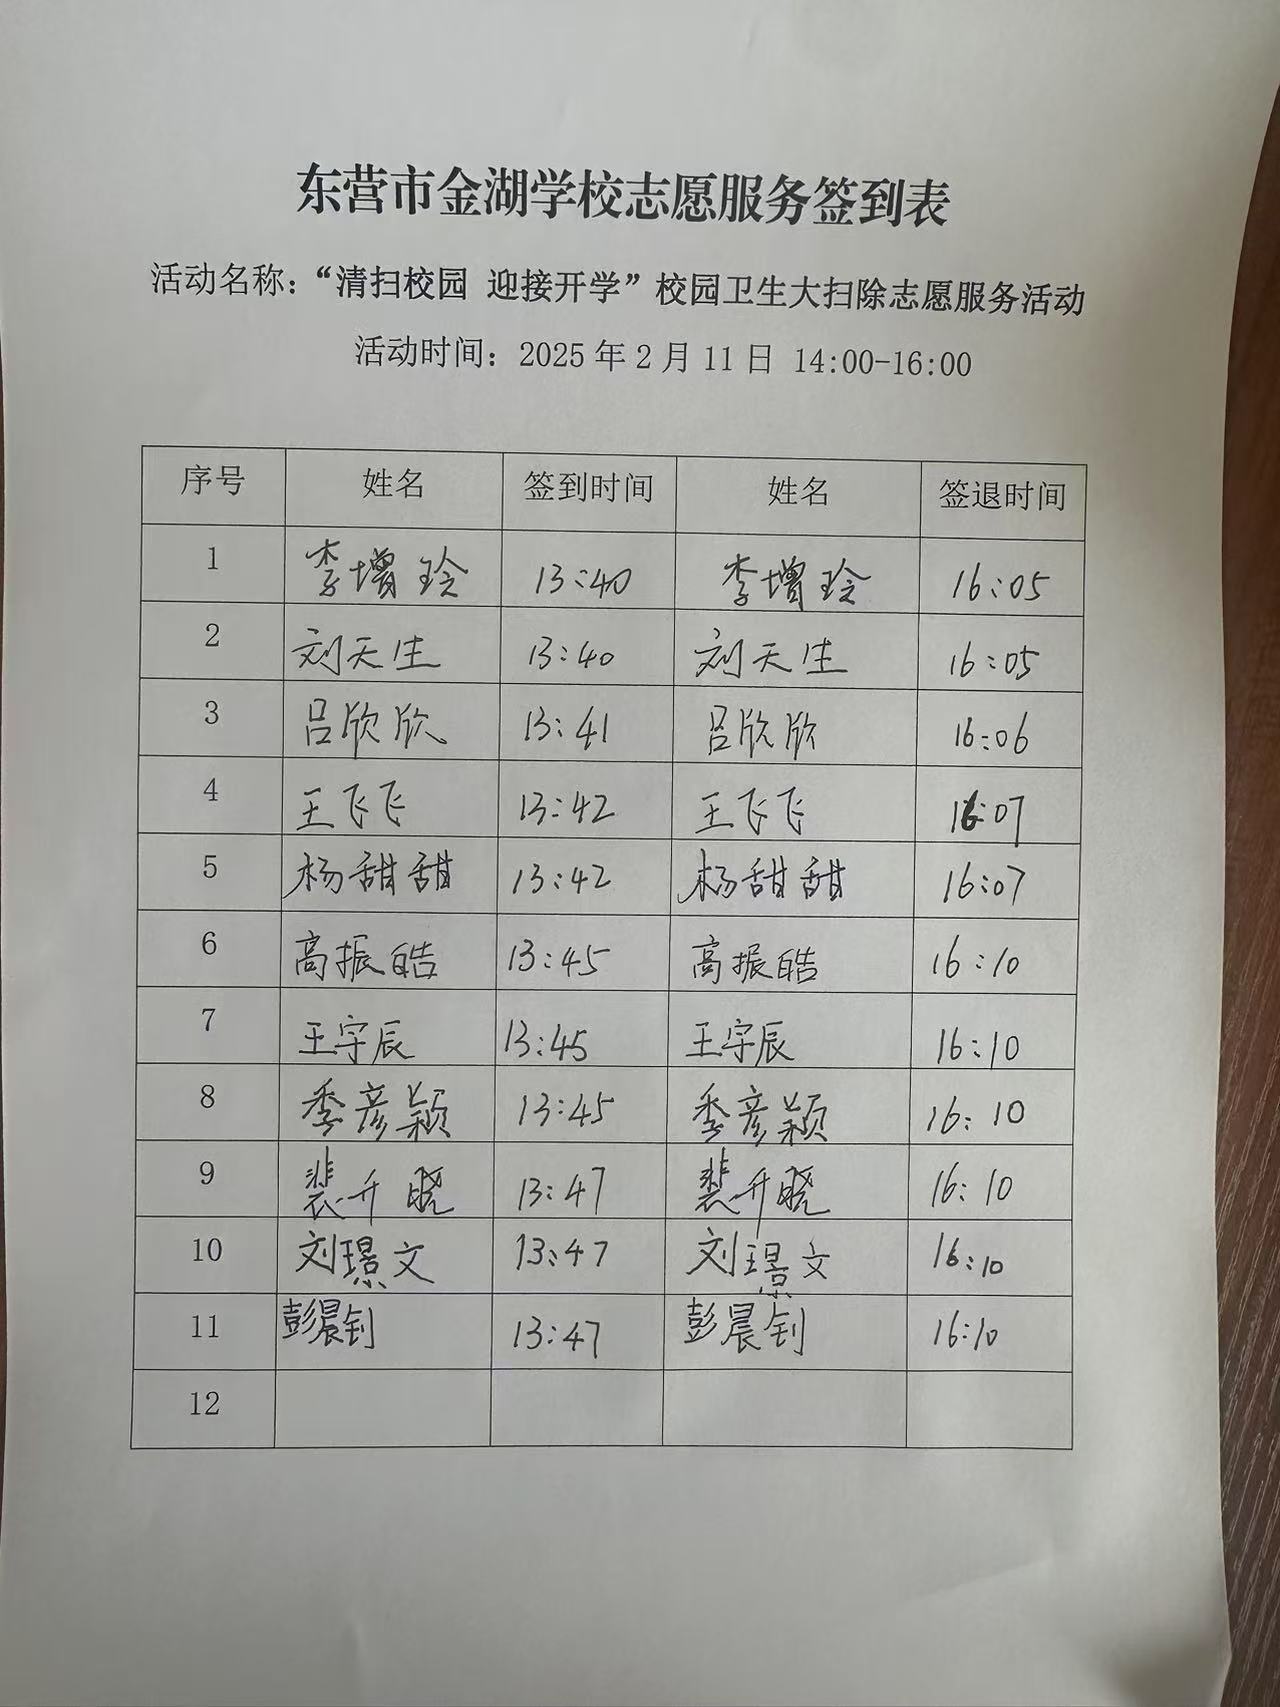 东营市金湖学校志愿服务签到表
活动名称：“清扫校园 迎接开学”校园卫生大扫除志愿服务活动
活动时间：2025年2月11日 14:00-16:00
序号 姓名 签到时间 姓名 签退时间
1 李增玲 13:40 李增玲 16:05
2 刘天生 13:40 刘天生 16:05
3 吕欣欣 13:41 吕欣欣 16:06
4 王飞飞 13:42 王飞飞 16:07
5 杨甜甜 13:42 杨甜甜 16:07
6 高振皓 13:45 高振皓 16:10
7 王宇辰 13:45 王宇辰 16:10
8 季彦颖 13:45 季彦颖 16:10
9 裴升晓 13:47 裴升晓 16:10
10 刘璟文 13:47 刘璟文 16:10
11 彭晨钊 13:47 彭晨钊 16:10
12